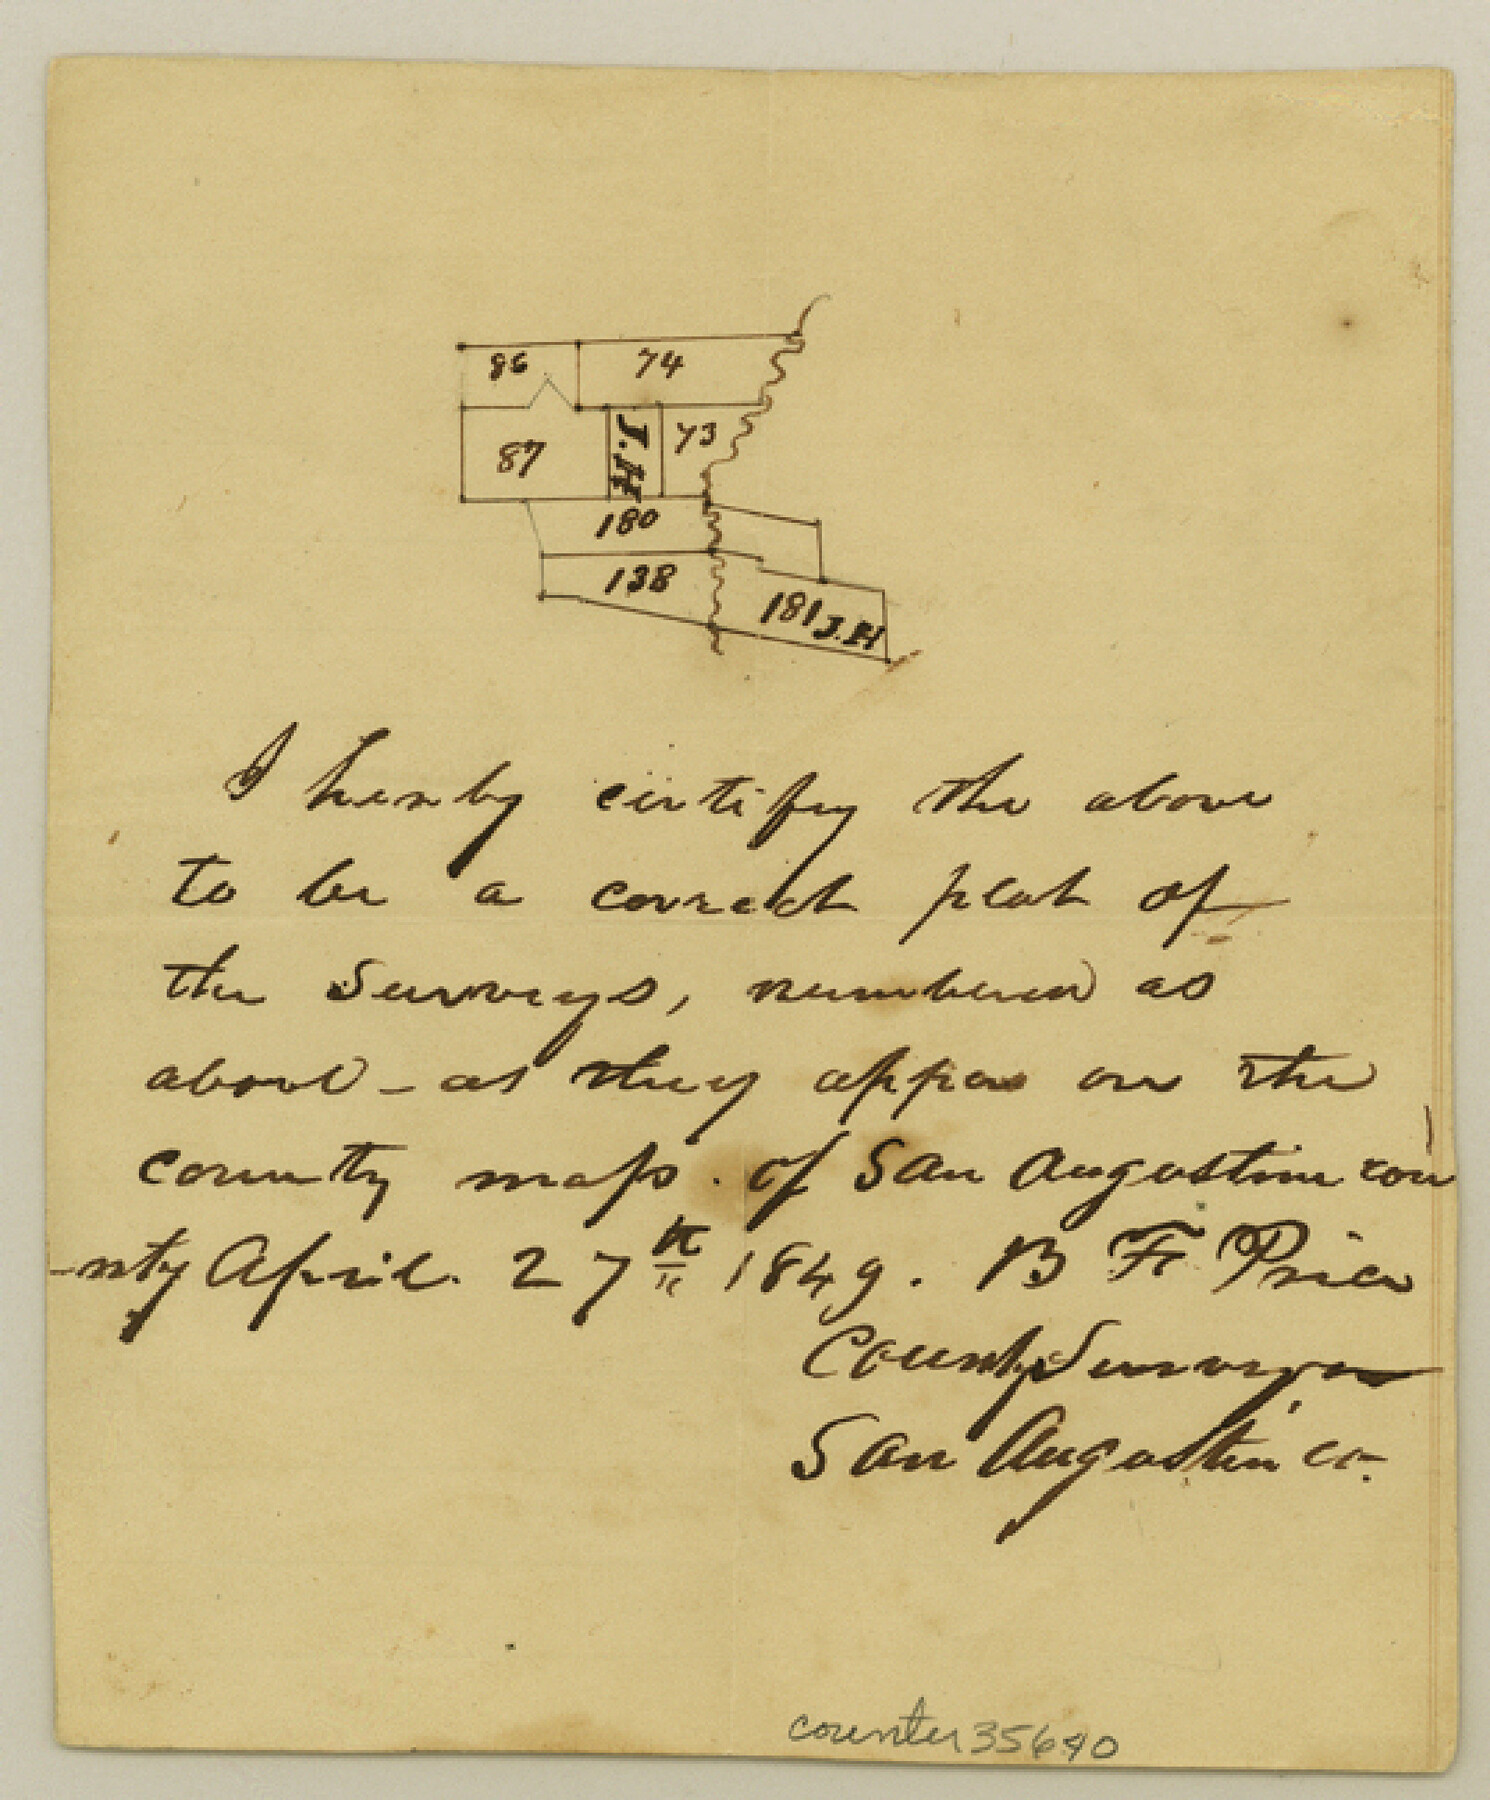 86 74
87 J.H 73
180
138 181 J.H
I hereby certify the above
to be a correct plat of
the Surveys, numbered as
above - as they appear on the
county map. of San Augustine cou
-nty April. 27th 1849. B F Price
County Surveyor
San Augustin co.
counter 35640